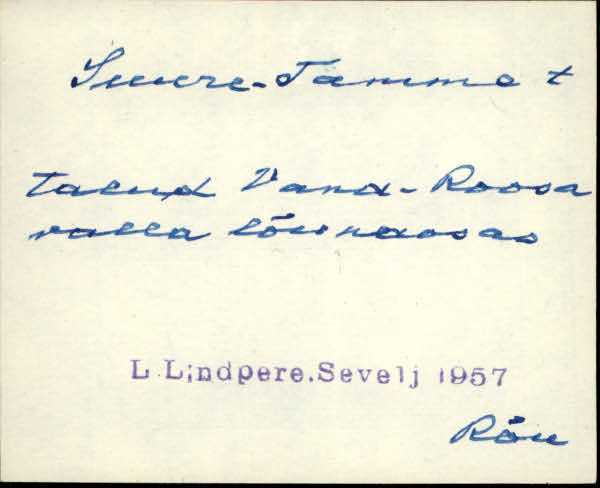 Suure-Tamme t
talud Vana-Roosa
valla lõunaosas
L Lindpere. Sevelj 1957
Rõu